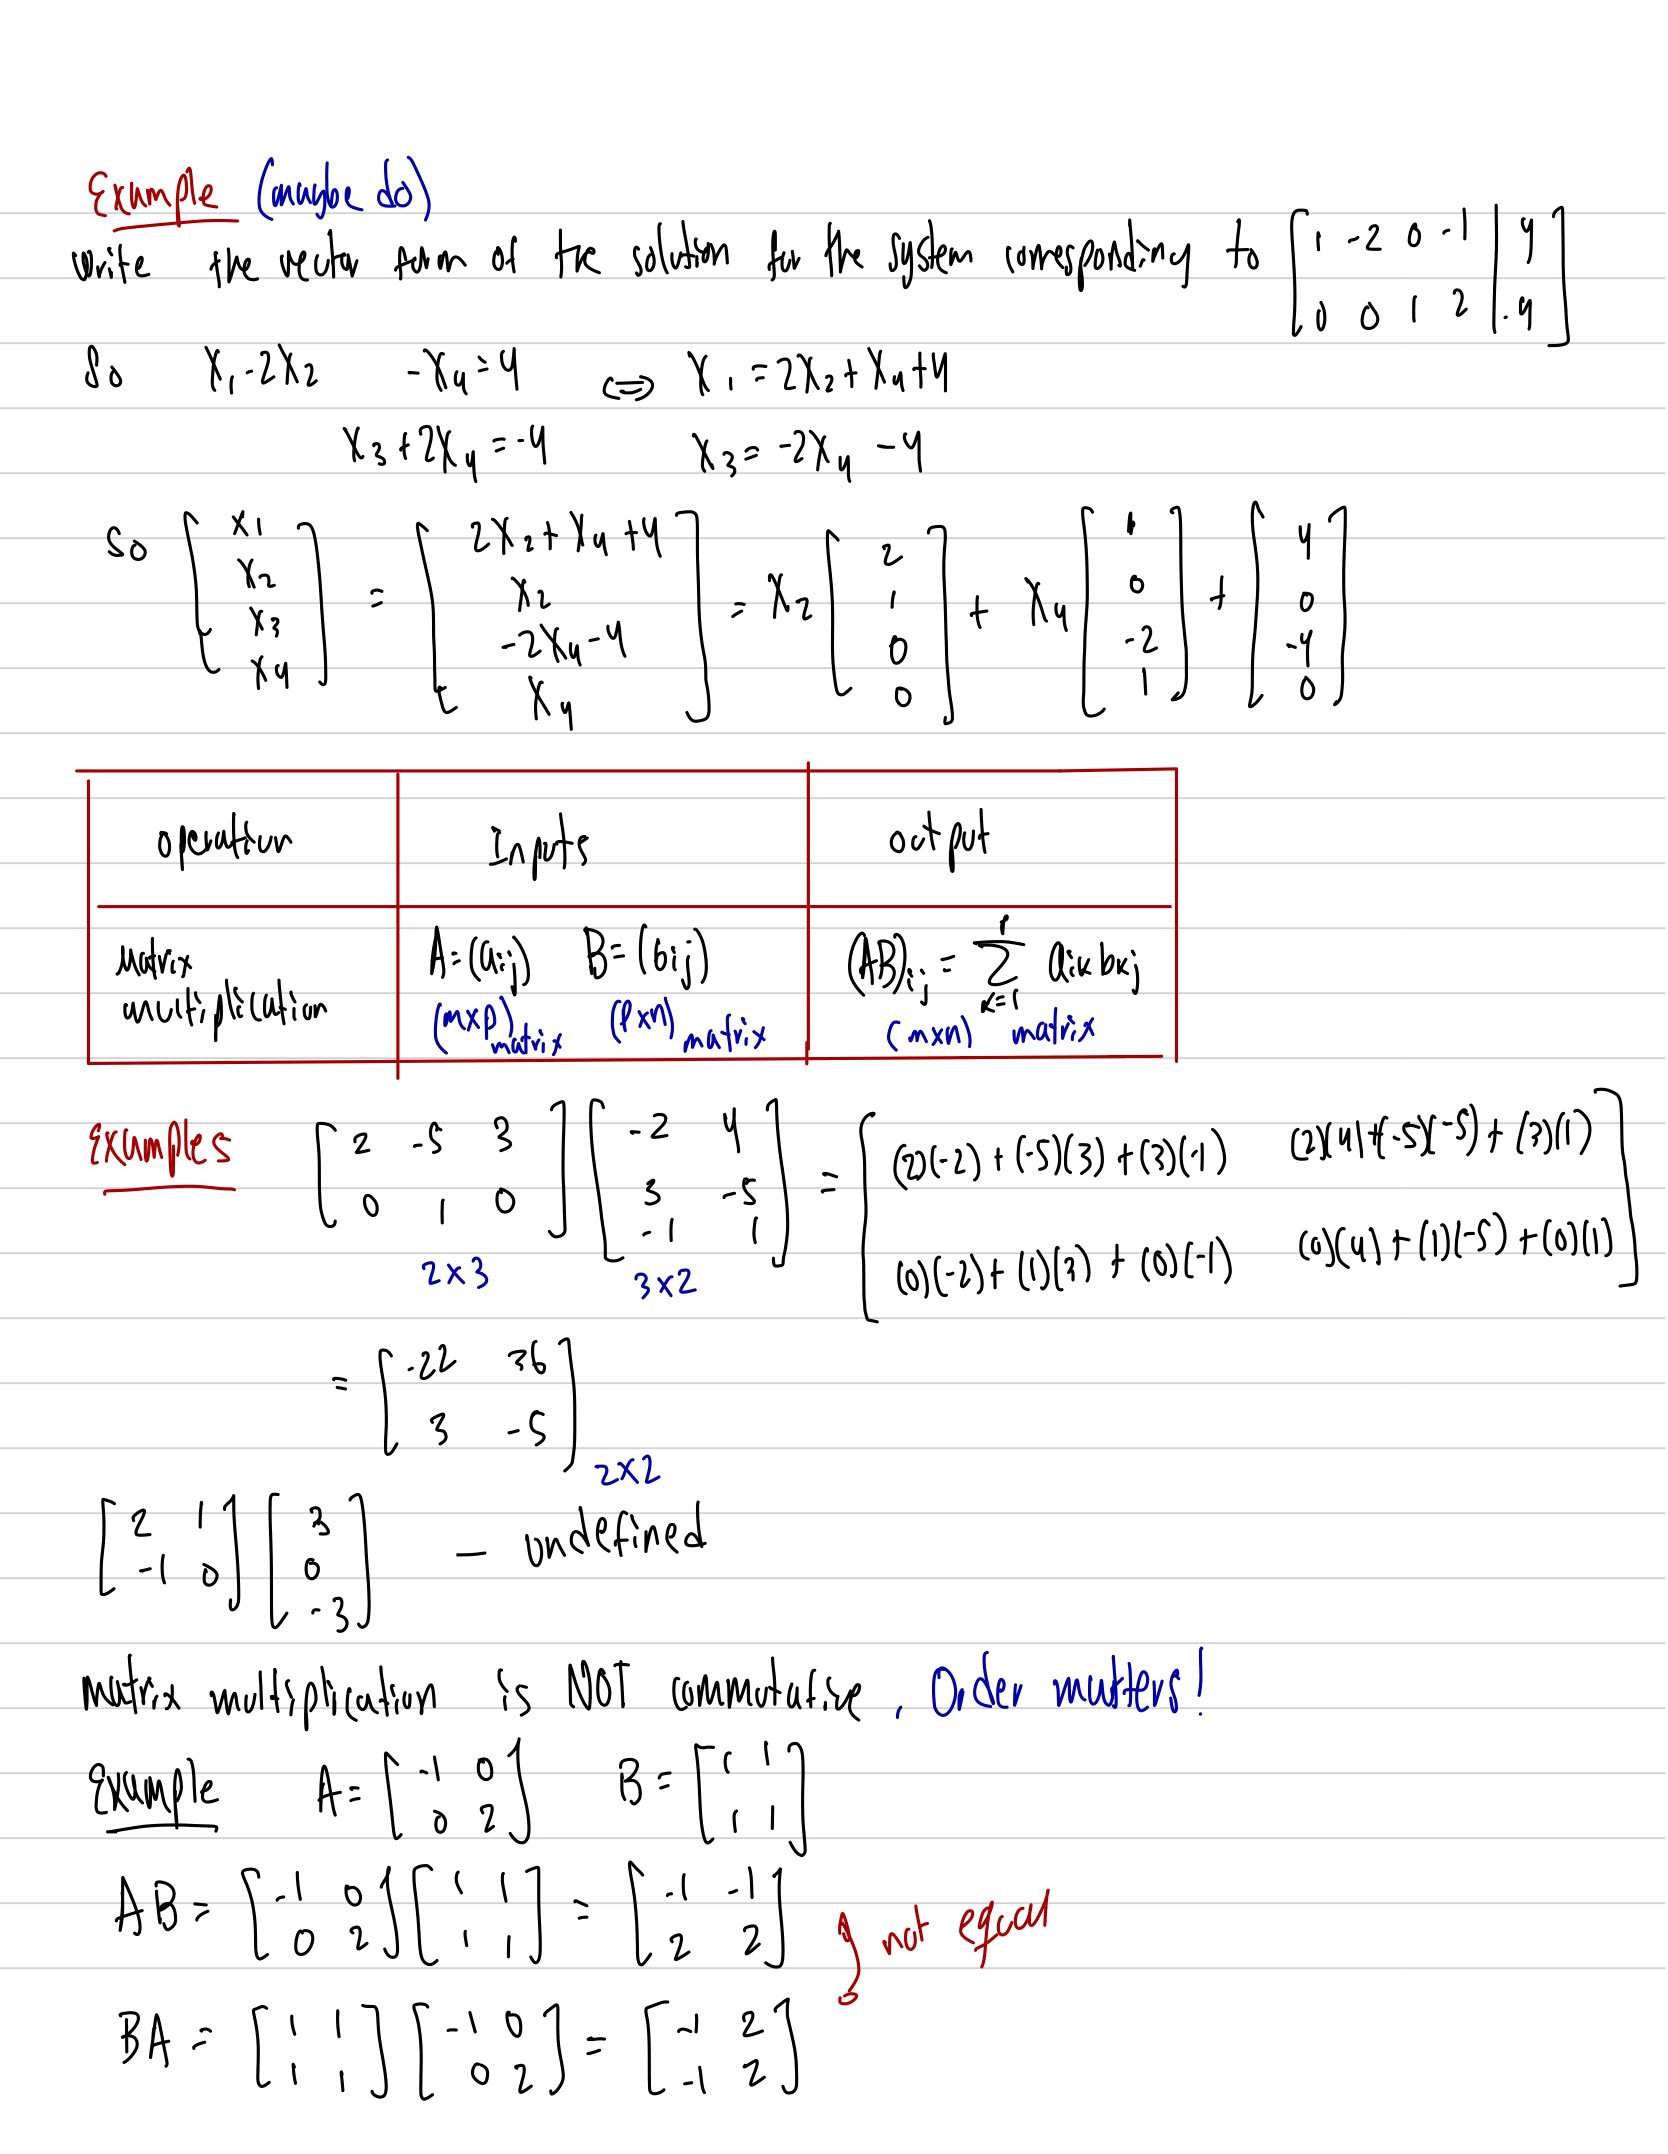 Example (maybe do)
write the vector form of the solution for the system corresponding to [1 -2 0 -1 | 4
0 0 1 2 | -4]
So x₁-2x₂ -x₄=4 ⇔ x₁=2x₂+x₄+4
x₃+2x₄=-4 x₃=-2x₄-4
So [x1 x2 x3 x4] = [2x₂+x₄+4 x₂ -2x₄-4 x₄] = x₂ [2 1 0 0] + x₄ [1 0 -2 1] + [4 0 -4 0]
operation Inputs output
Matrix multiplication A=(aij) B=(bij) (AB)ij = Σ k=1 p aik bkj
(mxp) matrix (pxn) matrix (mxn) matrix
Examples [2 -5 3
0 1 0] [-2 4
3 -5
-1 1] = [(2)(-2)+(-5)(3)+(3)(-1) (2)(4)+(-5)(-5)+(3)(1)
(0)(-2)+(1)(3)+(0)(-1) (0)(4)+(1)(-5)+(0)(1)]
2x3 3x2
= [-22 36
3 -5]
2x2
[2 1
-1 0] [3
0
-3] - undefined
matrix multiplication is NOT commutative. Order matters!
Example A= [-1 0
0 2] B= [1 1
1 1]
AB= [-1 0
0 2] [1 1
1 1] = [-1 -1
2 2]
not equal
BA= [1 1
1 1] [-1 0
0 2] = [-1 2
-1 2]